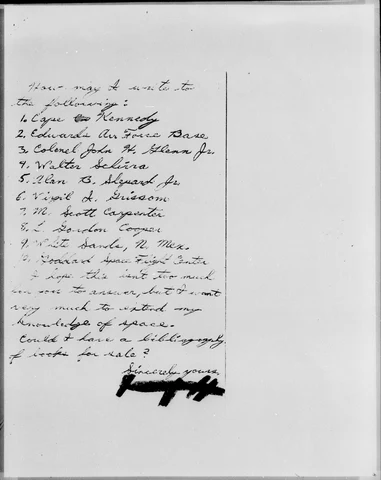 How may I write to
the following:
1. Cape Kennedy
2. Edwards Air Force Base
3. Colonel John H. Glenn Jr.
4. Walter Schirra
5. Alan B. Shepard Jr.
6. Virgil I. Grissom
7. M. Scott Carpenter
8. L. Gordon Cooper
9. White Sands, N. Mex.
10. Goddard Space Flight Center
I hope this isn't too much
for you to answer, but I want
very much to extend my
knowledge of space.
Could I have a
of books for sale?
Sincerely yours